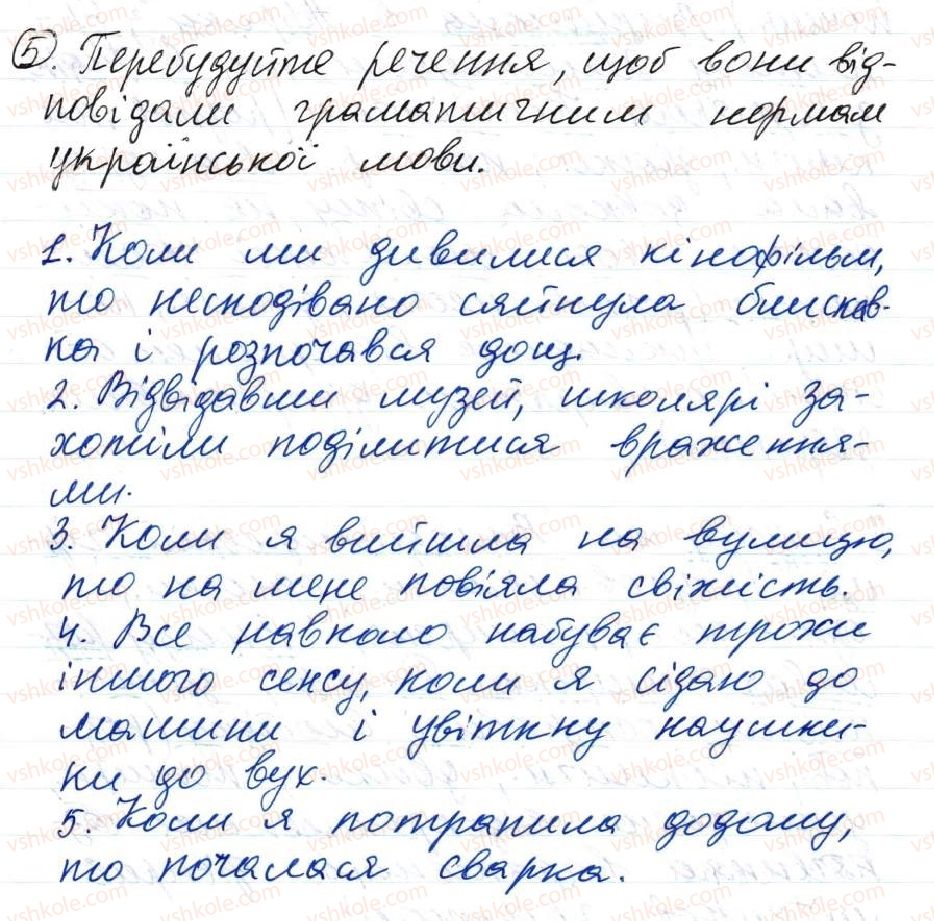 5. Перебудуйте речення, щоб вони від-
повідали граматичним нормам
української мови.
1. Коли ми дивилися кінофільм,
то несподівано сяйнула блискав-
ка і розпочався дощ.
2. Відвідавши музей, школярі за-
хотіли поділитися враження-
ми.
3. Коли я вийшла на вулицю,
то на мене повіяла свіжість.
4. Все навколо набуває трохи
іншого сенсу, коли я сідаю до
машини і увіткну наушни-
ки до вух.
5. Коли я потрапила додому,
то почалася сварка.